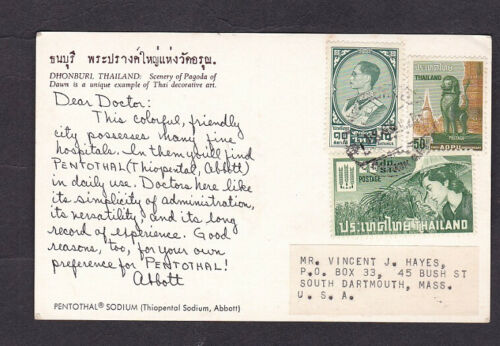 ธนบุรี พระปรางค์ใหญ่แห่งวัดอรุณ.
DHONBURI, THAILAND: Scenery of Pagoda of
Dawn is a unique example of Thai decorative art.
Dear Doctor:
This colorful, friendly
city possesses many fine
hospitals. In them you'll find
PENTOTHAL (Thiopental, Abbott)
in daily use. Doctors here like
its simplicity of administration,
its versatility and its long
record of experience. Good
reasons, too, for your own
preference for PENTOTHAL!
Abbott
PENTOTHAL® SODIUM (Thiopental Sodium, Abbott)
ประเทศไทย
THAILAND
50
POSTAGE
POSTAGE
ประเทศไทย THAILAND
MR. VINCENT J. HAYES,
P.O. BOX 33, 45 BUSH ST
SOUTH DARTMOUTH, MASS.
U. S. A.